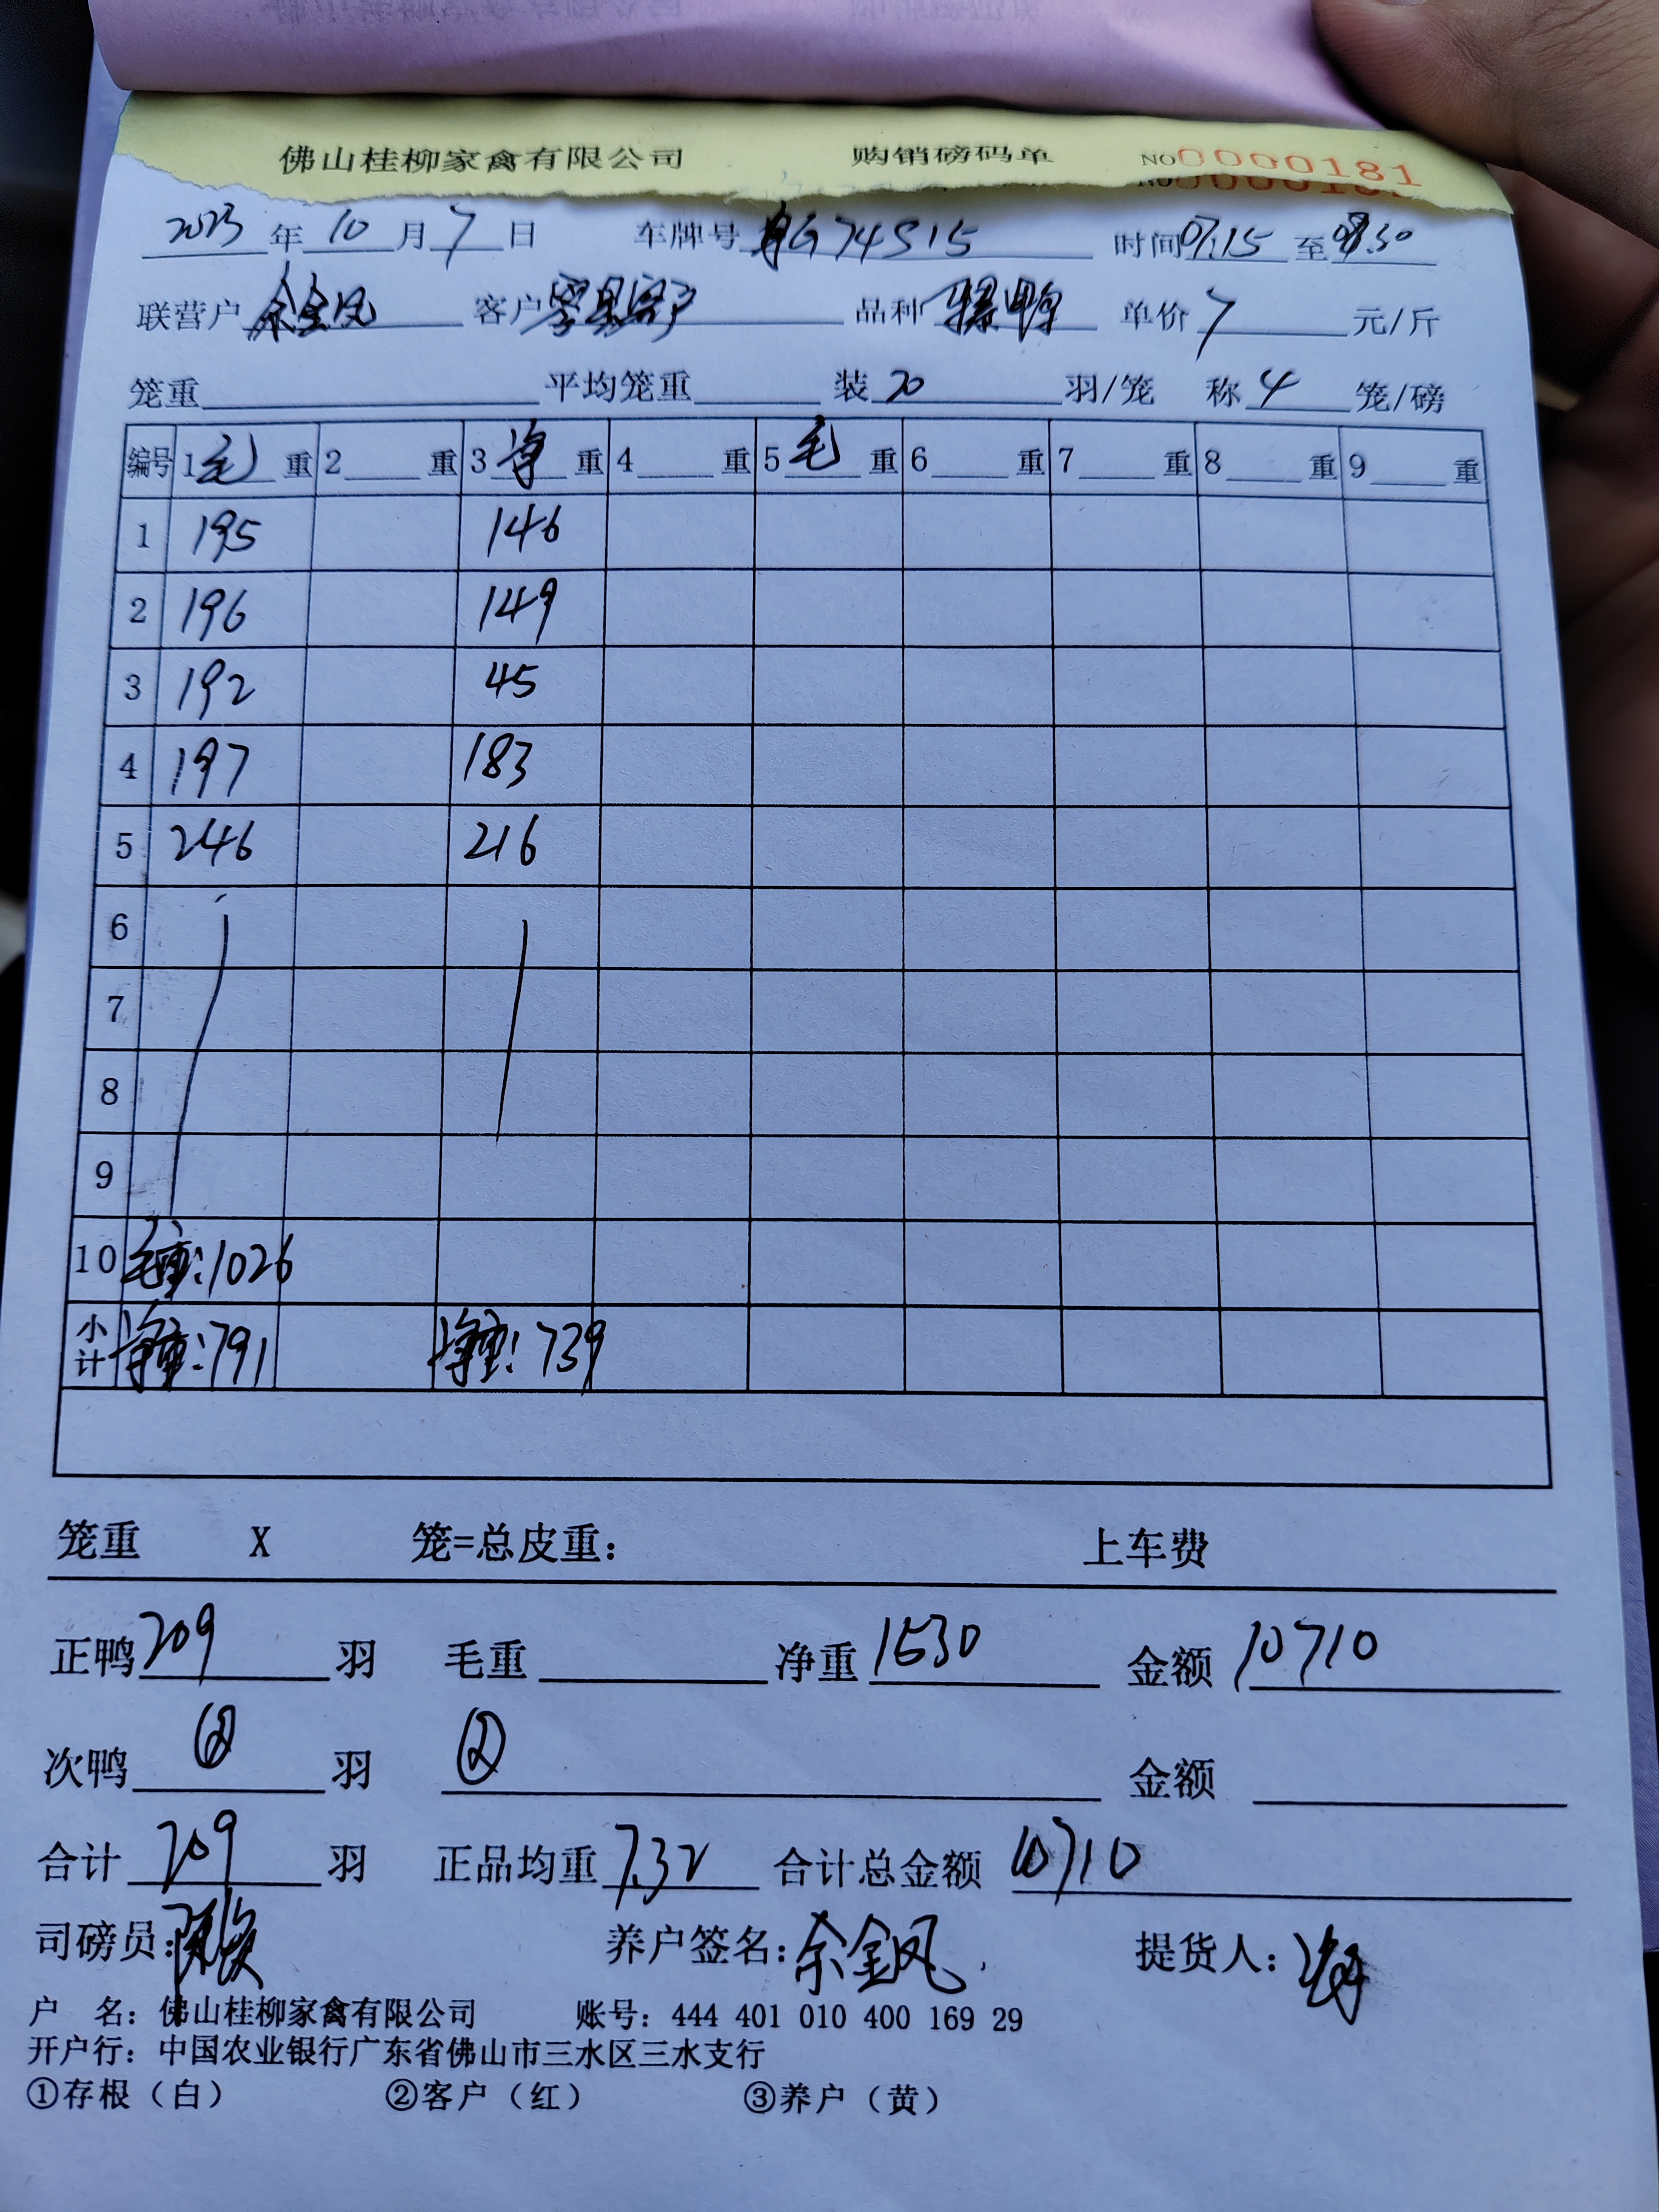 佛山桂柳家禽有限公司 购销磅码单 NO 0000181
2023 年 10 月 7 日 车牌号 G74515 时间 07:15 至 08:30
联营户 余金凤 客户 客户 品种 鸭 单价 7 元/斤
笼重 平均笼重 装 20 羽/笼 称 4 笼/磅
编号 1 毛 重 2 重 3 净 重 4 重 5 毛 重 6 重 7 重 8 重 9 重
1 195 146
2 196 149
3 192 45
4 197 183
5 246 216
6
7
8
9
10 毛重:1026
小计 净重:791 净重:739
笼重 X 笼=总皮重: 上车费
正鸭 209 羽 毛重 净重 1530 金额 10710
次鸭 ② 羽 ② 金额
合计 209 羽 正品均重 7.32 合计总金额 10710
司磅员: 养户签名:余金凤 提货人:
户 名:佛山桂柳家禽有限公司 账号:444 401 010 400 169 29
开户行:中国农业银行广东省佛山市三水区三水支行
①存根(白) ②客户(红) ③养户(黄)